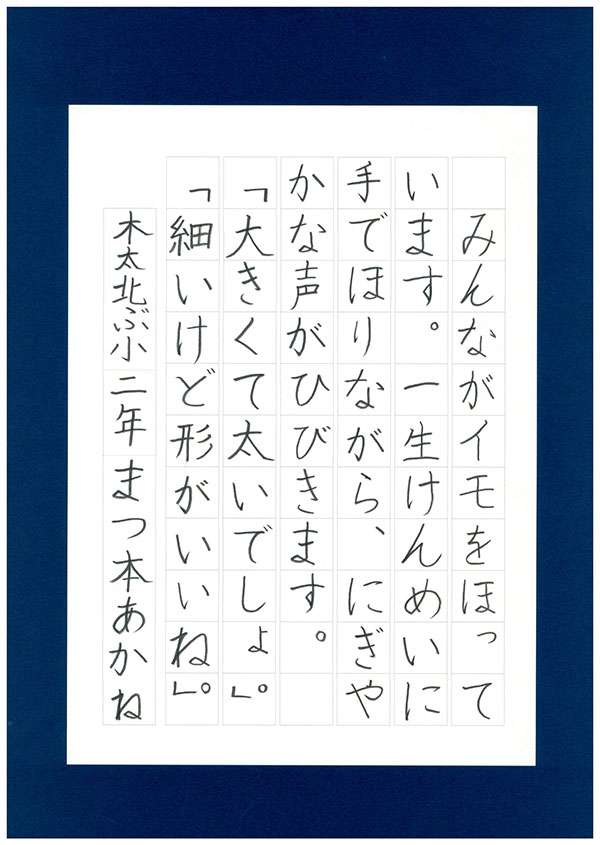 みんながイモをほって
います。一生けんめいに
手でほりながら、にぎや
かな声がひびきます。
「大きくて太いでしょ」。
「細いけど形がいいね」。
木太北ぶ小 二年 まつ本あかね